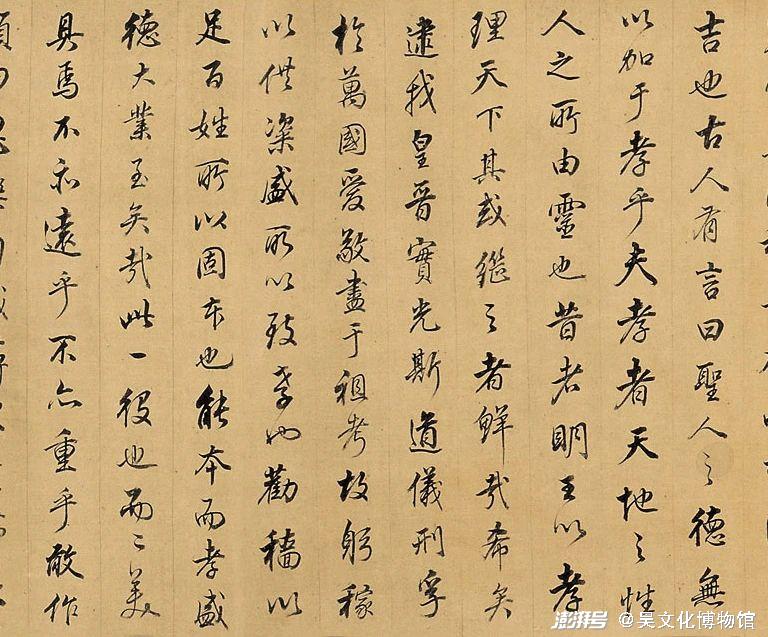 吉也古人有言曰聖人之德無
以加于孝乎夫孝者天地之性
人之所由靈也昔者明王以孝
理天下其或繼之者鮮哉希矣
逮我皇晉實光斯道儀刑孚
於萬國愛敬盡于祖考故躬稼
以供粢盛所以致孝也勸穡以
足百姓所以固本也能本而孝盛
德大業至矣哉此一役也而二美
具焉不亦遠乎不亦重乎敢作
澎湃号 @吴文化博物馆